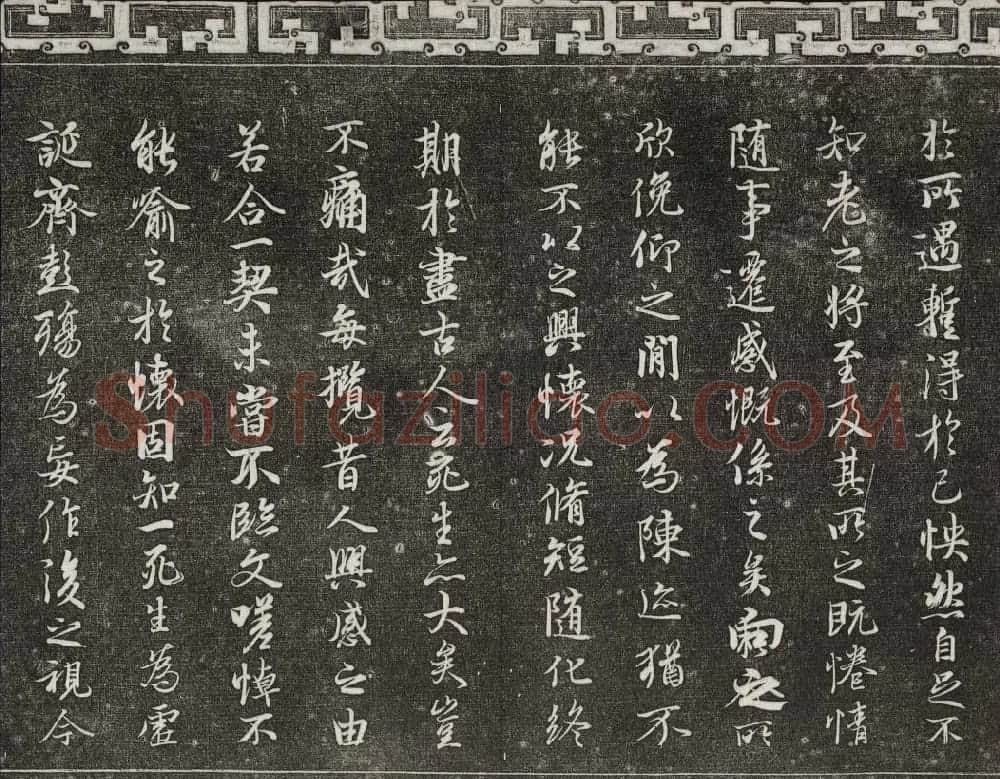 於所遇暫得於己怏然自足不
知老之將至及其所之既惓情
隨事遷感慨係之矣向之所
欣俛仰之閒以為陳迹猶不
能不以之興懷況脩短隨化終
期於盡古人云死生亦大矣豈
不痛哉每攬昔人興感之由
若合一契未嘗不臨文嗟悼不
能喻之於懷固知一死生為虛
誕齊彭殤為妄作後之視今
Shufaziliao.COM